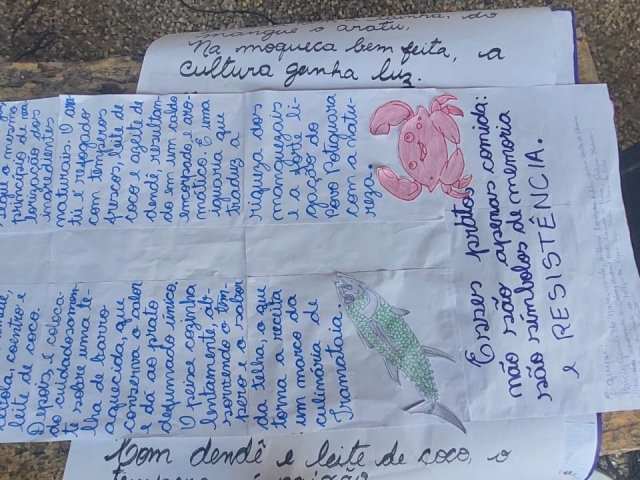 mangue o aratu,
Na moqueca bem feita, a
cultura ganha luz.
segue o mesmo
princípio de va
lorização dos
ingredientes
naturais. O ara
tu é refogado
com temperos
frescos, leite de
coco e azeite de
dendê, resultan
do em um caldo
encorpado e aro
mático. É uma
iguaria que
traduz a
riqueza dos
manguezais
e a forte li-
gação do
Povo Potiguara
com a natu-
reza.
leite de coco.
Depois, é coloca-
do cuidadosamen-
te sobre uma te-
lha de barro
aquecida, que
conserva o calor
e dá ao prato
defumado único.
O peixe cozinha
lentamente, ab-
sorvendo o tem-
pero e o sabor
da telha, o que
torna a receita
um marco da
culinária de
Tramataia.
Esses pratos
não são apenas comida:
são símbolos de memória
e RESISTÊNCIA.
Com dendê e leite de coco, o